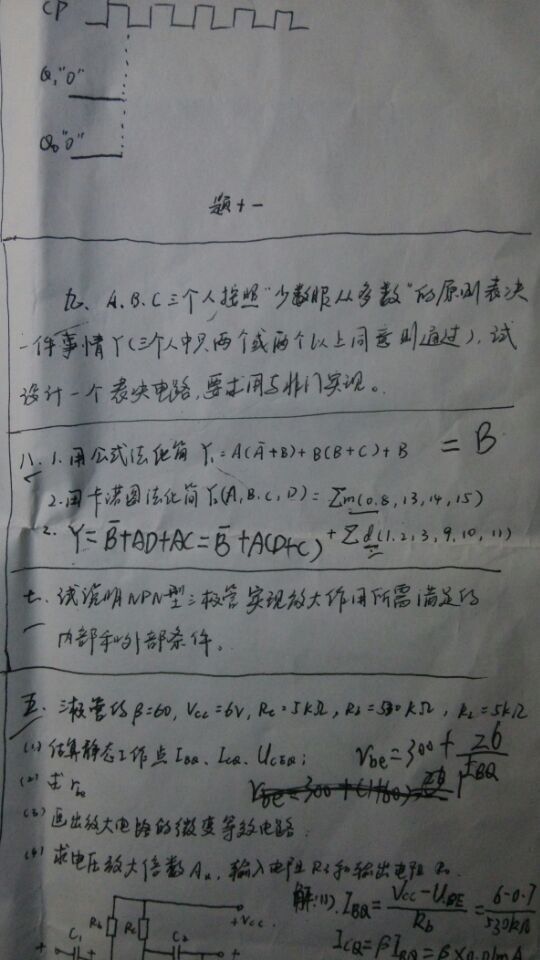 CP
Q₁"0"
Q₀"0"
题十一
九、A.B.C三个人按照"少数服从多数"的原则表决
一件事情Y(三个人中只两个或两个以上同意则通过),试
设计一个表决电路,要求用与非门实现。
八. 1.用公式法化简 Y₁=A(Ā+B)+B(B+C)+B =B
2.用卡诺图法化简Y₂(A,B,C,D)=Σm(0.8,13,14,15)
+Σd(1,2,3,9,10,11)
2. Y=B̄+AD+AC=B̄+A(D+C)
七、试说明NPN型三极管实现放大作用所需满足的
内部和外部条件。
五. 三极管的β=60, Vcc=6V, Rc=5kΩ, Rb=530kΩ, RL=5kΩ
(1)估算静态工作点IBQ、ICQ、UCEQ;
(2)求rbe
Vbe=300+26/IBQ
(3)画出放大电路的微变等效电路.
(4)求电压放大倍数Au,输入电阻Ri和输出电阻Ro.
解:(1). IBQ=(Vcc-UBE)/Rb=(6-0.7)/530kΩ
ICQ=βIBQ=β×0.01mA
Rb Rc +Vcc
C1 C2